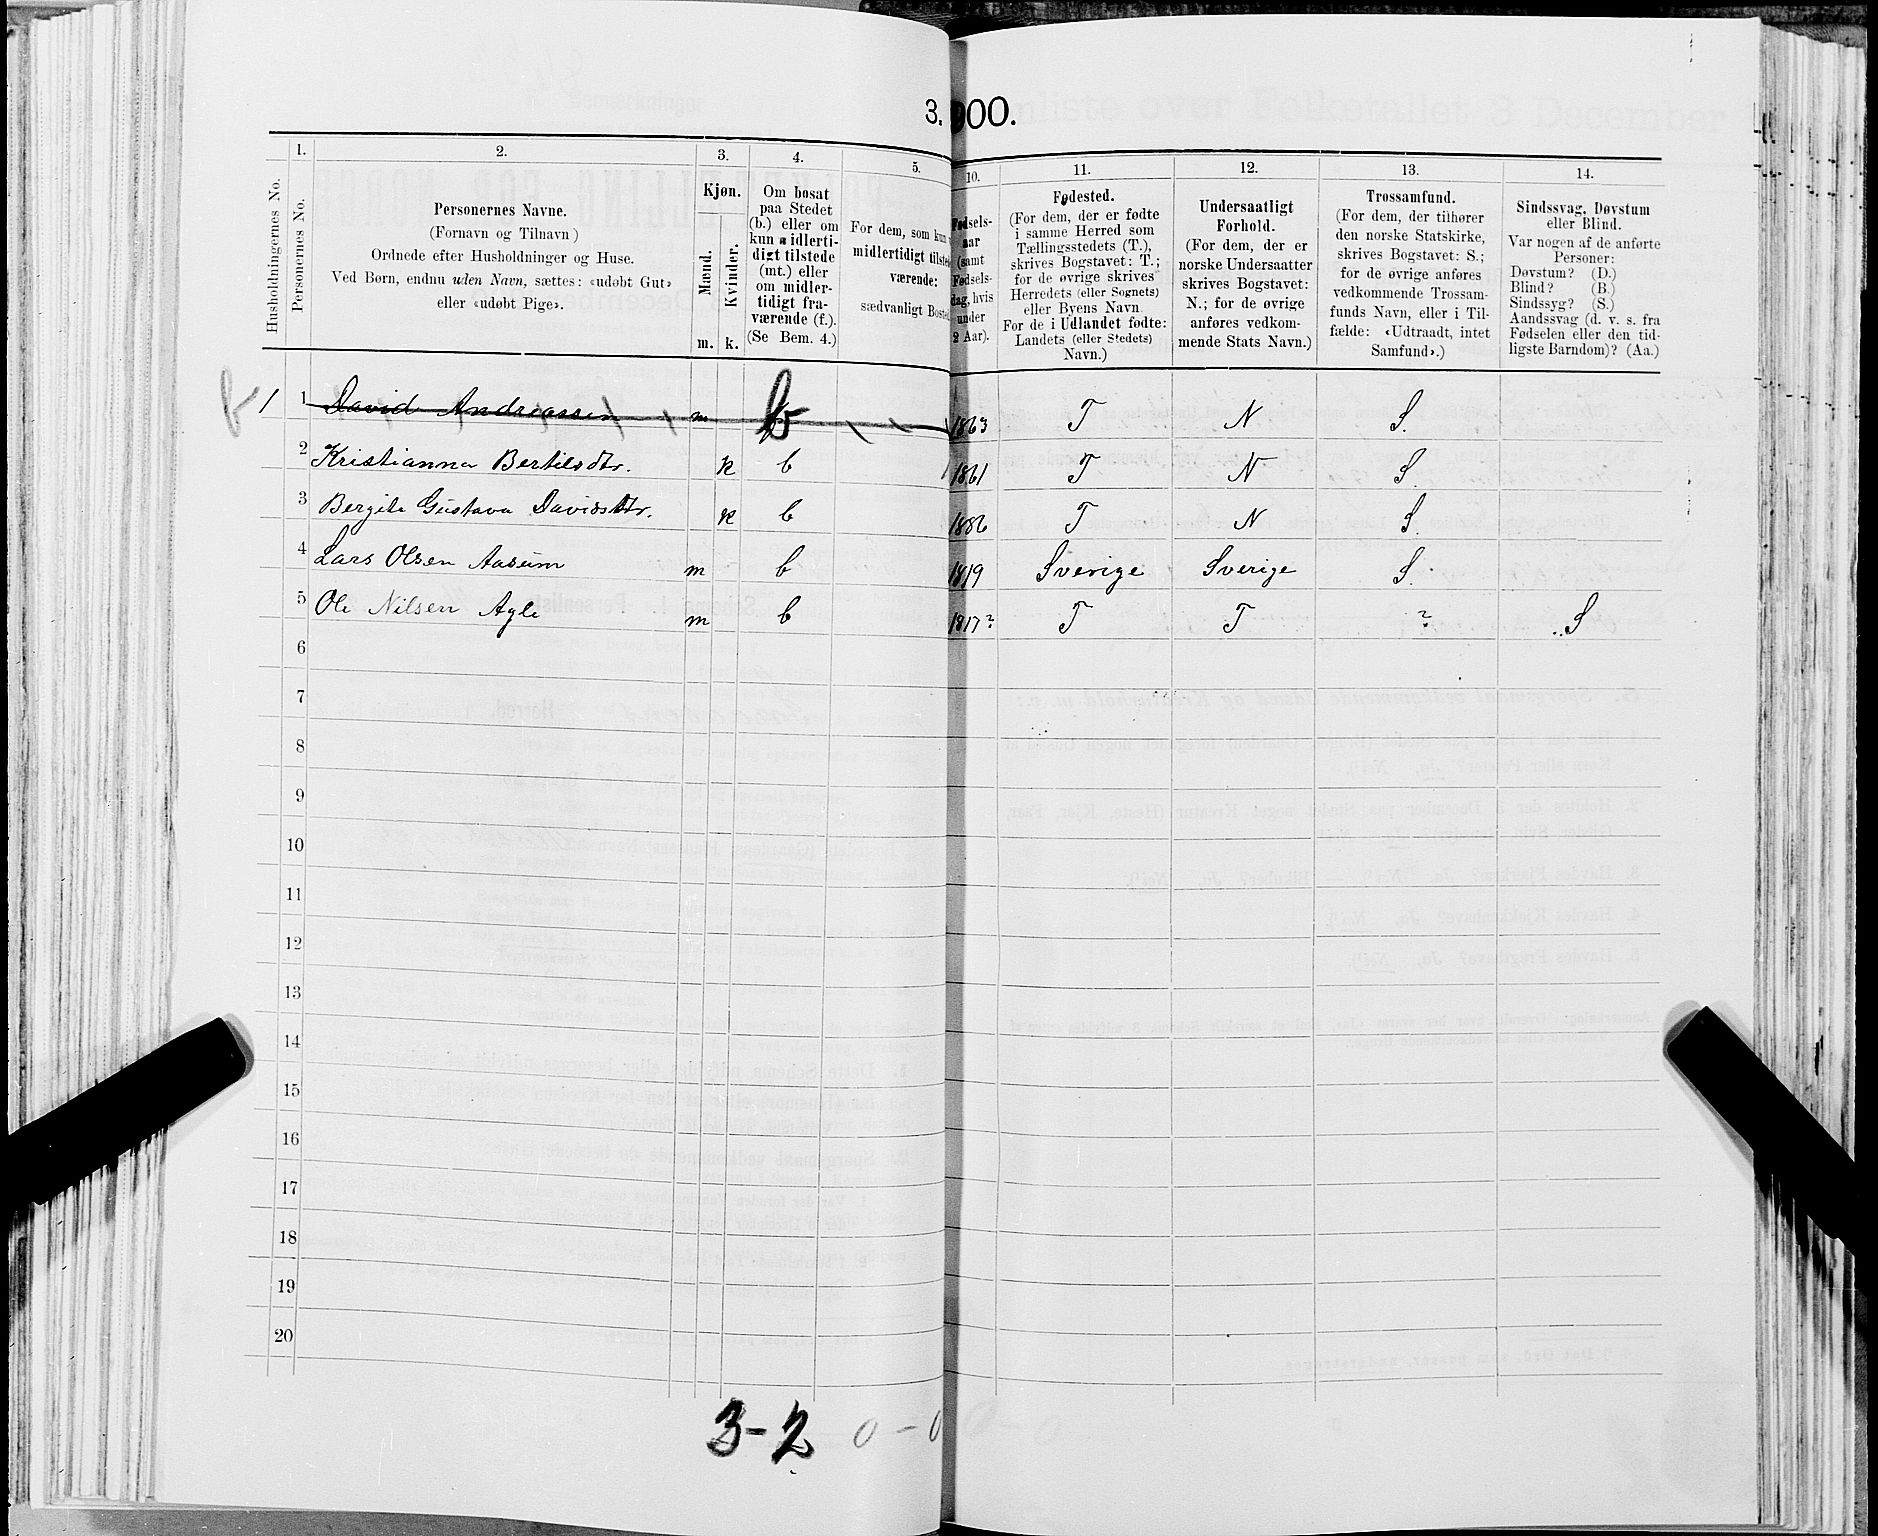 3. 000.
Husholdningernes No.
1.
Personernes No.
2.
Personernes Navne.
(Fornavn og Tilnavn)
Ordnede efter Husholdninger og Huse.
Ved Børn, endnu uden Navn, sættes: «udøbt Gut»
eller «udøbt Pige».
3.
Kjøn.
Mænd.
Kvinder.
m. k.
4.
Om bosat
paa Stedet
(b.) eller om
kun midlerti-
digt tilstede
(mt.) eller
om midler-
tidigt fra-
værende (f.).
(Se Bem. 4.)
5.
For dem, som kun
midlertidigt tilste
værende:
sædvanligt Boste
10.
Fødsels-
aar
(samt
Fødsels-
dag, hvis
under
2 Aar).
11.
Fødested.
(For dem, der er fødte
i samme Herred som
Tællingsstedets (T.),
skrives Bogstavet: T.;
for de øvrige skrives
Herredets (eller Sognets)
eller Byens Navn.
For de i Udlandet fødte:
Landets (eller Stedets)
Navn.)
12.
Undersaatligt
Forhold.
(For dem, der er
norske Undersaatter
skrives Bogstavet:
N.; for de øvrige
anføres vedkom-
mende Stats Navn.)
13.
Trossamfund.
(For dem, der tilhører
den norske Statskirke,
skrives Bogstavet: S.;
for de øvrige anføres
vedkommende Trossam-
funds Navn, eller i Til-
fælde: «Udtraadt, intet
Samfund».)
14.
Sindssvag, Døvstum
eller Blind.
Var nogen af de anførte
Personer:
Døvstum? (D.)
Blind? (B.)
Sindssyg? (S.)
Aandssvag (d. v. s. fra
Fødselen eller den tid-
ligste Barndom)? (Aa.)
1 1 David Andreassen m b 1863 T N S.
2 Kristianna Bertilsdtr. k b 1861 T N S.
3 Bergite Gustava Davidsdtr. k b 1886 T N S.
4 Lars Olsen Aasum m b 1819 Sverige Sverige S.
5 Ole Nilsen Agle m b 1817? T T ? S
6
7
8
9
10
11
12
13
14
15
16
17
18
19
20
3-2 0-0 0-0